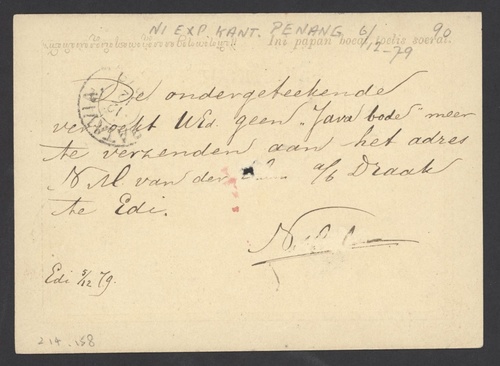 NI EXP. KANT. PENANG 6/2-79
90
Ini papan boeat toelis soerat.
De ondergeteekende
verzoekt WEd. geen „Java bode" meer
te verzenden aan het adres
N M van der a/b Draak
te Edi.
Edi 5/12 79.
214.158